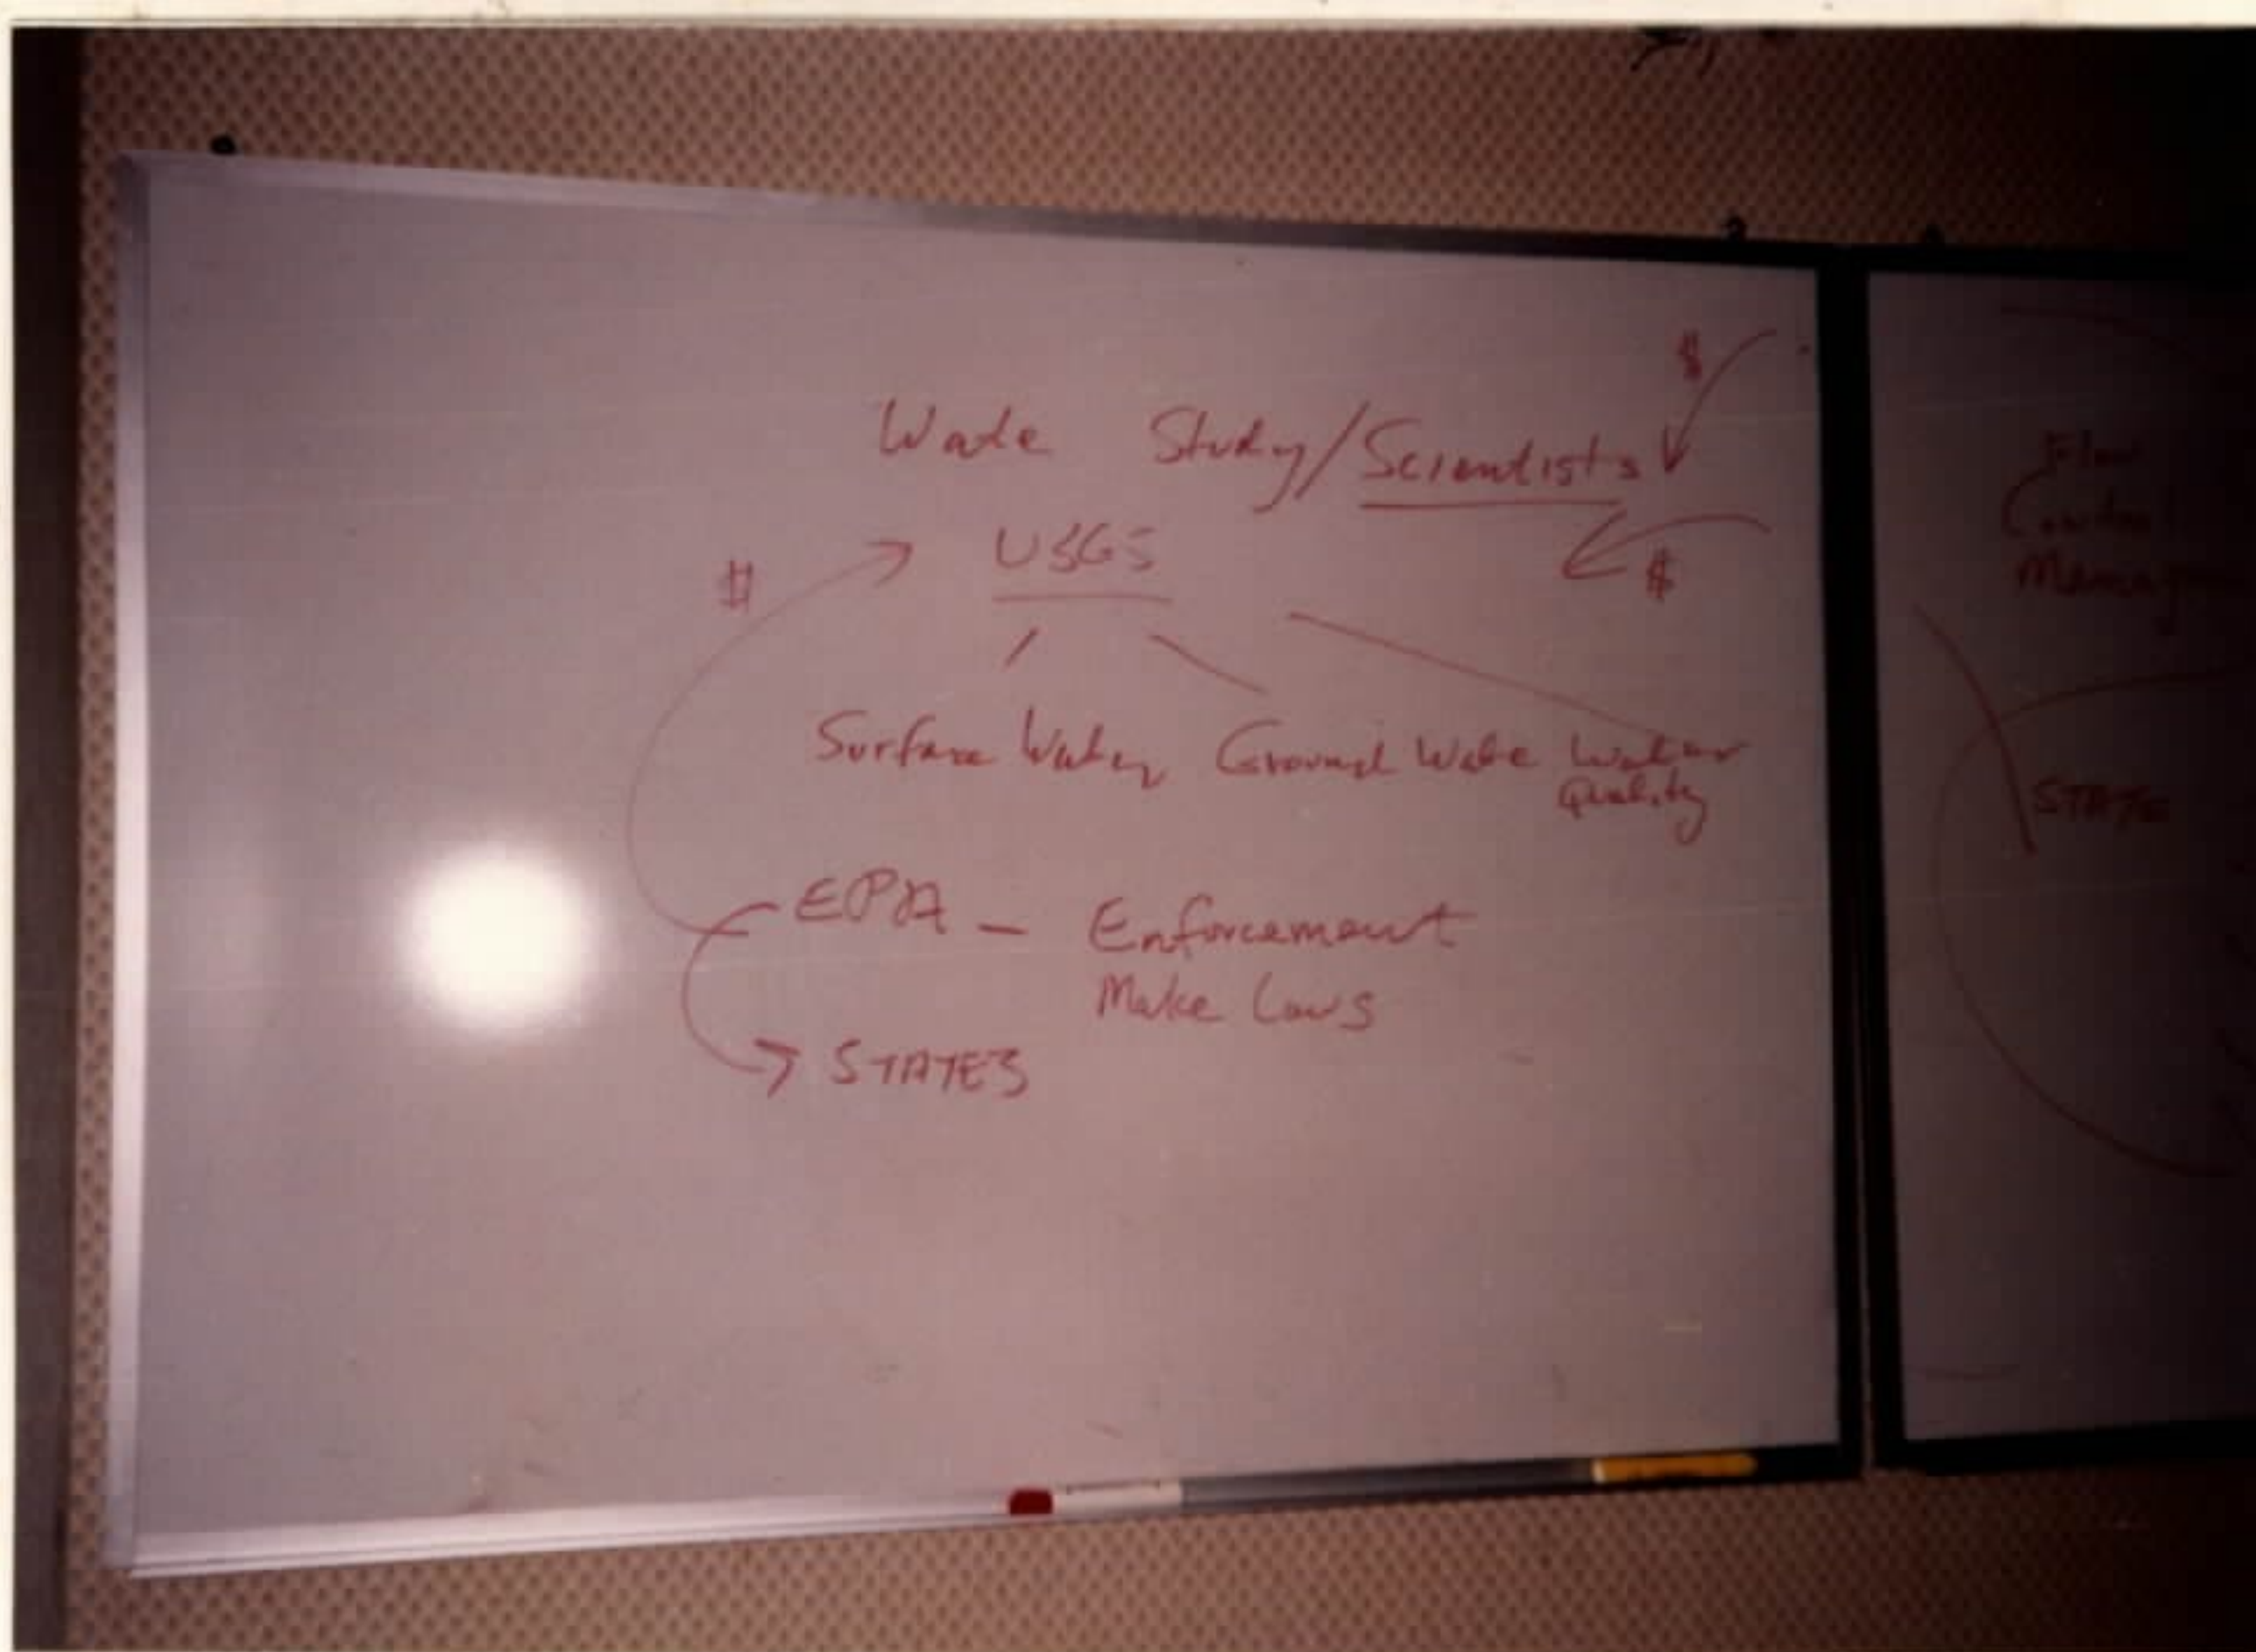 $
Wate Study/Scientists
USGS
$
$
Surface Water Ground Wate Water
Quality
EPA - Enforcement
Make Laws
STATES
Flow
Control
STATE